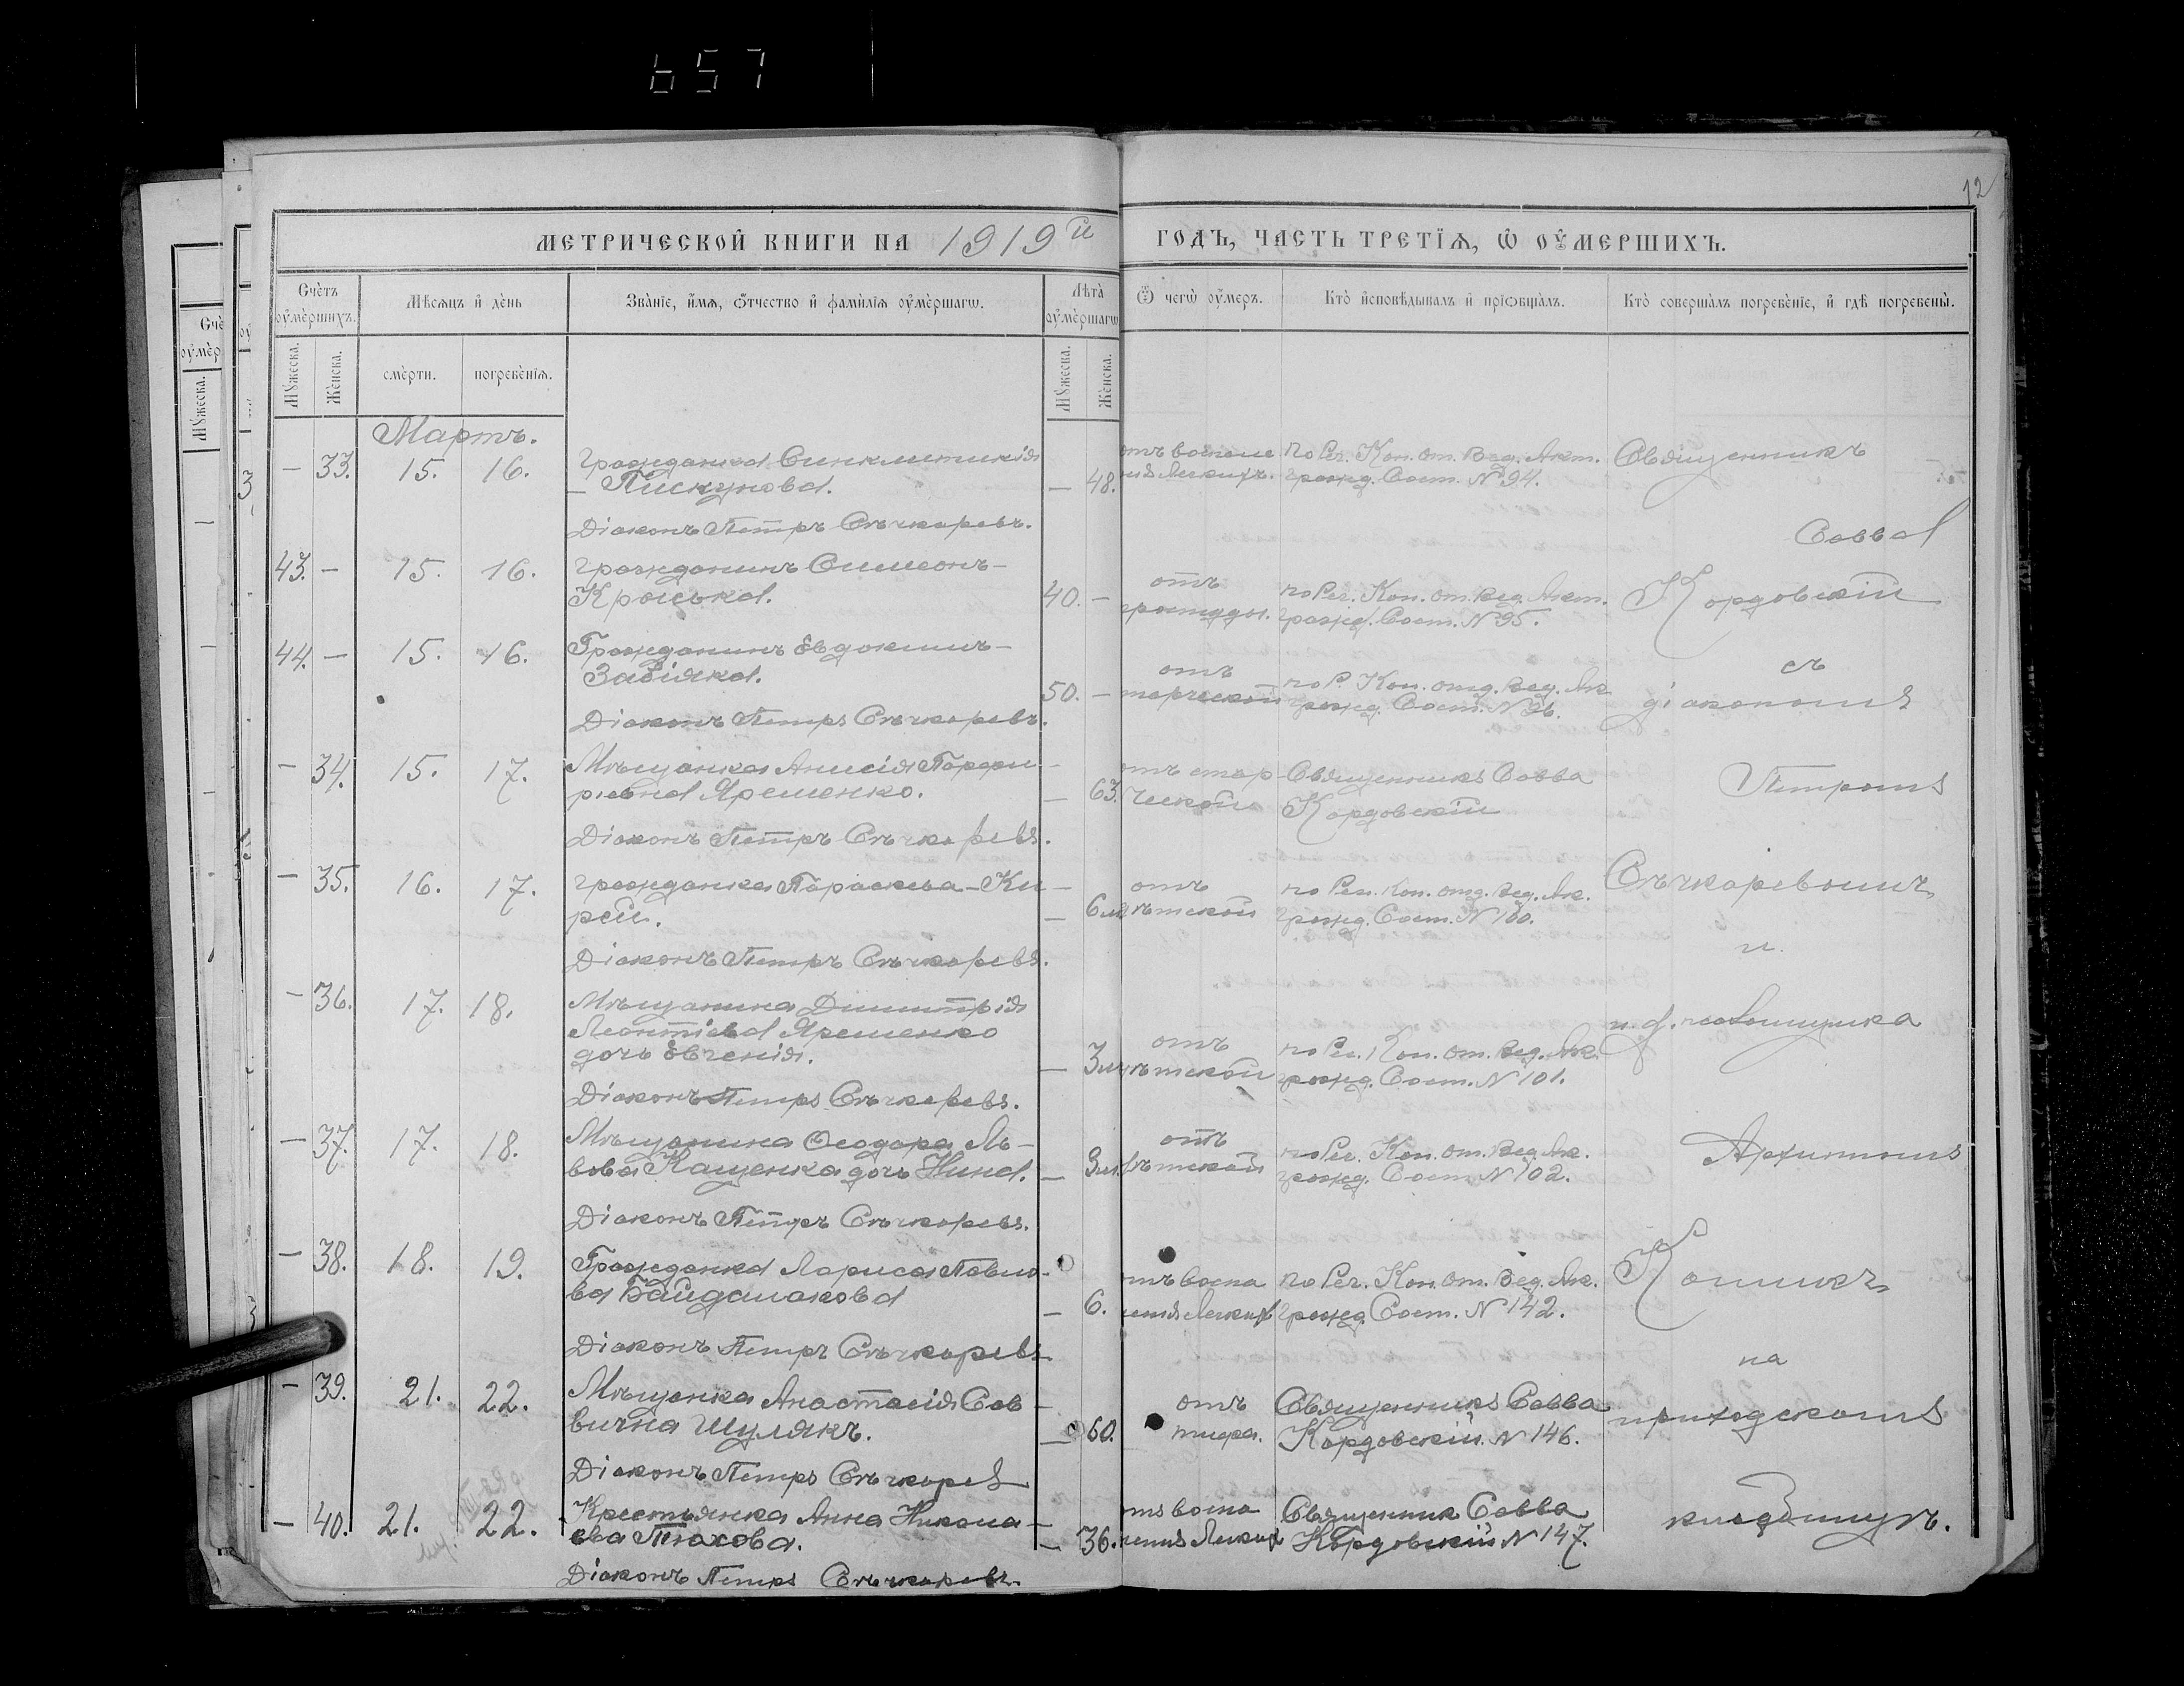 657
12
МЕТРИЧЕСКОЙ КНИГИ НА 1919й ГОДЪ, ЧАСТЬ ТРЕТІѦ, Ѿ ОУМЕРШИХЪ.
Счетъ оумершихъ.
Мѣсяцъ и день
Званіе, имя, отчество и фамилія оумершагѡ.
Лѣта оумершагѡ
Ѿ чегѡ оумеръ.
Кто исповѣдывалъ и пріобщалъ.
Кто совершалъ погребеніе, и гдѣ погребены.
Мужеска.
Женска.
смерти.
погребенія.
Мужеска.
Женска.
Мартъ.
— 33. 15. 16. Гражданка Синклитикія
— Пискунова. — 48.
отъ воспале
нія легкихъ.
по Рег. Кон. от. Вед. Акт.
гражд. Сост. N 94.
Священникъ
Діаконъ Петръ Сѣчкаревъ.
Савва
43. — 15. 16. Гражданинъ Симеонъ —
Кроська. 40. —
отъ
простуды.
по Рег. Кон. от. Вед. Акт.
гражд. Сост. N 95.
Кордовскій
44. — 15. 16. Гражданинъ Евдокимъ —
Забіяка. 50. —
отъ
по Р. Кон. отд. Вед. Ак
гражд. Сост. N 96.
съ
діакономъ
Діаконъ Петръ Сѣчкаревъ.
— 34. 15. 17. Мѣщанка Анисія Порфи —
рьевна Яременко. — 63.
отъ стар
ческой
Священникъ Савва
Кордовскій
Петромъ
Діаконъ Петръ Сѣчкаревъ.
— 35. 16. 17. Гражданка Параскева — Ки —
рей. — 6 м.
отъ
дѣтской
по Рег. Кон. отд. Вед. Ак.
гражд. Сост. N 100.
Сѣчкаревымъ
и
Діаконъ Петръ Сѣчкаревъ.
— 36. 17. 18. Мѣщанина Димитрія
Леонтіева Яременко
дочь Евгенія. — 3 м.
отъ
дѣтской
по Рег. Кон. от. Вед. Ак.
гражд. Сост. N 101.
и. д. псаломщика
Діаконъ Петръ Сѣчкаревъ.
— 37. 17. 18. Мѣщанина Ѳеодора Ль —
вова Кащенка дочь Нина. —
отъ
дѣтской
по Рег. Кон. от. Вед. Ак.
гражд. Сост. N 102.
Архипомъ
Діаконъ Петръ Сѣчкаревъ.
— 38. 18. 19. Гражданка Лариса Павло —
ва Байдашакова — 6.
отъ воспа
ленія легких
по Рег. Кон. От. Вед. Ак.
гражд. Сост. N 142.
Діаконъ Петръ Сѣчкаревъ
на
— 39. 21. 22. Мѣщанка Анастасія Сав —
вична Шулякъ. — 60.
отъ
тифа.
Священникъ Савва
Кордовскій. N 146.
приходскомъ
Діаконъ Петръ Сѣчкарев
— 40. 21. 22. Крестьянка Анна Никола —
ева — 36.
отъ воспа
ленія легких
Священник Савва
Кордовскій N 147.
кладбищѣ.
Діаконъ Петръ Сѣчкаревъ.